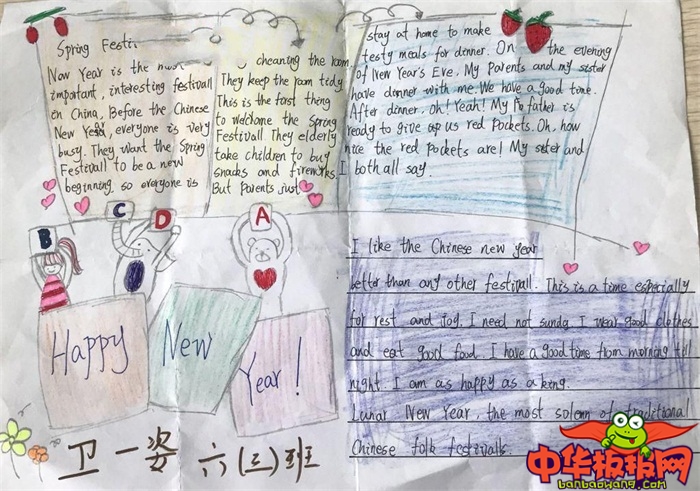 Spring Festi
Now Year is the most
important, interesting festivall
en China, Before the Chinese
New Year, everyone is very
busy. They want the Spring
Festivall to be a new
beginning, so everyone is
cheaning the room,
They keep the room tidy
This is the farst thing
to welcome the Spring
Festivall. They elderly
take children to buy
snacks and fireworks
But parents just
stay at home to make
testy meals for dinner. On the evening
of New Year's Eve, My Parents and my sister
have donner with me. We have a good time.
After dinner, Oh! Yeah! My father is
ready to give up us red pockets. Oh, how
nice the red pockets are! My sister and
I both all say.
B C D A
Happy New Year!
I like the Chinese new year
better than any other festivall. This is a time especially
for rest and joy. I need not sundy. I wear good clothes
and eat good food. I have a good time from morning till
night. I am as happy as a king.
Lunar New Year, the most solemn of traditional
Chinese folk festivals
卫一姿 六(三)班
中华板报网
banbaowang.com